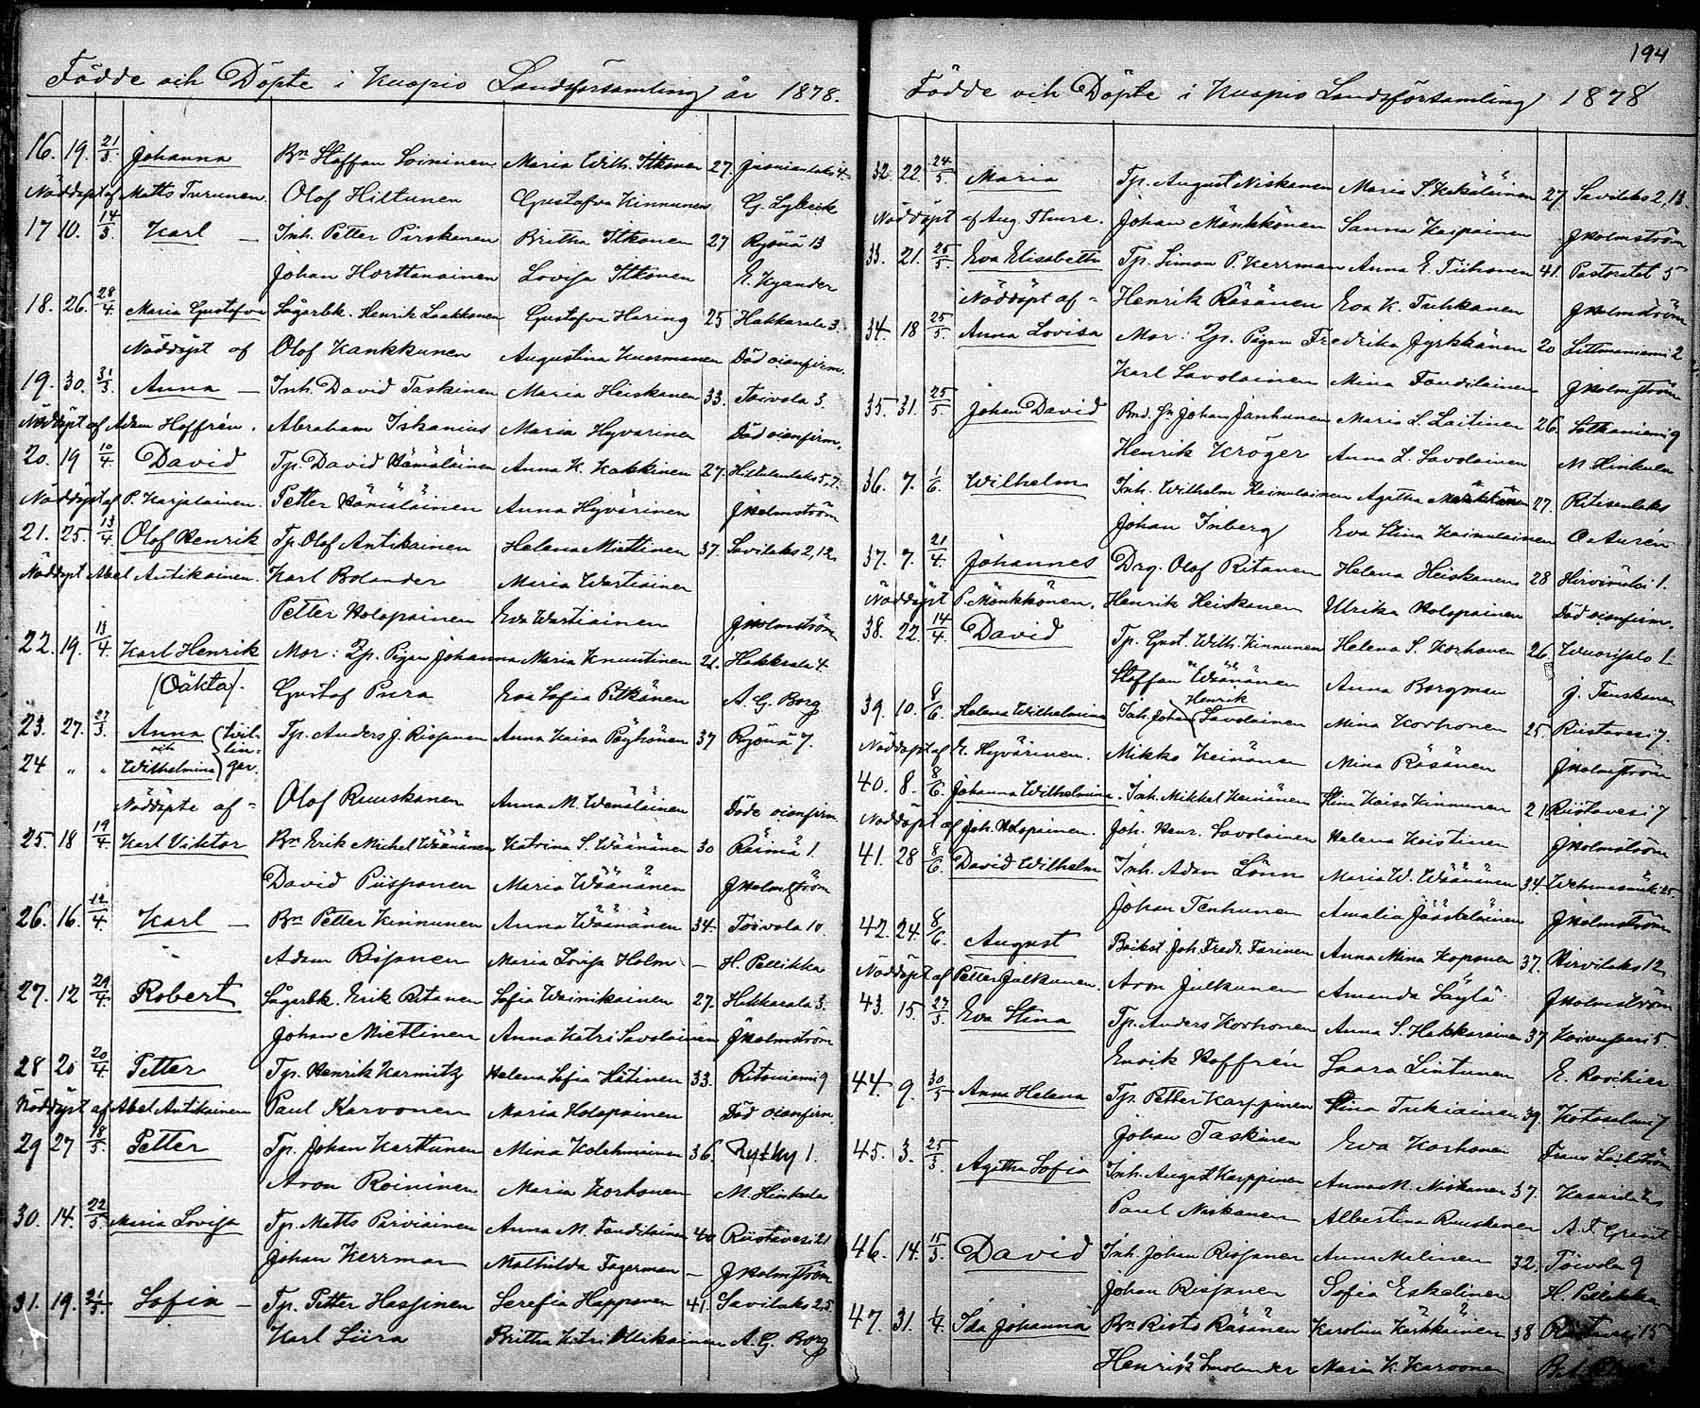 Födde och Döpte i Kuopio Landsförsamling år 1878.
16. 19. 21/3 Johanna Bn Staffan Soininen Maria Wilh. Itkonen 27. 4.
Nöddöpt af Matts Turunen. Olof Hiltunen Gustafva Kinnunen G. Lybeck
17 10. 14/3. Karl — Inh. Petter Pirskanen Britha Itkonen 27 Ryönä 13
Johan Horttanainen Lovisa Itkonen E. Kyander
18. 26. 28/4 Maria Gustafva Lägerbk. Henrik Laakkonen Gustafva Haring 25 Hakkarala 3.
Nöddöpt af Olof Kankkunen Augustina Kuosmanen Död oconfirm.
19. 30. 31/3. Anna — Inh. David Taskinen Maria Heiskanen 33. Toivola 3.
Nöddöpt af Adam Hoffrén. Abraham Iskanius Maria Hyvärinen Död oconfirm.
20. 19 10/4. David Tp. David Hämäläinen Anna K. Kakkinen 27. 5,7.
Nöddöpt af P. Karjalainen. Petter Hämäläinen Anna Hyvärinen J Holmström
21. 25. 13/4. Olof Henrik Tp. Olof Antikainen Helena Miettinen 37. Savilaks 2, 12
Nöddöpt Abel Antikainen. Karl Bolander Maria Wartiainen
Petter Holopainen Eva Wartiainen J Holmström
22. 19. 13/4. Karl Henrik Mor: Zp. Pigan Johanna Maria Knuutinen 21. Hakkrala 4
(Oäkta). Gustaf Pura Eva Sofia Pitkänen A. G. Borg
23. 27. 27/3. Anna (tvil- Tp. Anders J. Rissanen Anna Kaisa Pöyhönen 37 Ryönä 7.
och lin-
24 " " Wilhelmina) gar.
Nöddöpte af = Olof Ruuskanen Anna M. Wenäläinen Döde oconfirm.
25. 18 19/4 Karl Viktor Bn Erik Michel Wäänänen Katrina S. Wäänänen 30 Räimä 1.
David Piispanen Maria Wäänänen J Holmström
26. 16. 12/4. Karl — Bn Petter Kinnunen Anna Wäänänen 34 Toivola 10.
Adam Rissanen Maria Lovisa Holm — H. Pellikka
27. 12 29/4. Robert Lägerbk. Erik Ritanen Sofia Wainikainen 27. Hakkarala 3.
Johan Miettinen Anna Katri Savolainen J Holmström
28 20 20/4. Petter Tp. Henrik Karmitz Helena Sofia Hätinen 33. Ritoniemi 9
Nöddöpt af Abel Antikainen Paul Karvonen Maria Holopainen Död oconfirm
29 27 18/5. Petter Tp. Johan Karttunen Mina Kolehmainen 36. Rytky 1.
Aron Roininen Maria Korhonen M. Hinkula
30. 14. 22/5. Maria Lovisa Tp. Matts Parviainen Anna M. Tanditainen 40 Riistavesi 21
Johan Kerrman Mathilda Fagerman — J Holmström
31. 19. 21/5. Sofia — Tp. Petter Hassinen Serefia Happonen 41. Savilaks 2,5.
Karl Liira Britta Katri A. G. Borg
194
Födde och Döpte i Kuopio Landsförsamling 1878
32. 22. 24/5 Maria Tp. August Niskanen Maria S. Kakäläinen 27. Savilaks 2, 13
Nöddöpt af Aug. Thure. Johan Mönkkönen Sanna Kaipainen J Holmström
33. 21. 25/5. Eva Elisabeth Tp. Simon P. Kerrman Anna E. Tiihonen 41. Pastoratet 5
Nöddöpt af = Henrik Räsänen Eva K. Tuhkanen J Holmström
34 18 25/5. Anna Lovisa Mor: Zp. Pigan Fredrika Jyrkkänen 20 Littmaniemi 2
Karl Savolainen Mina Tanditainen J Holmström
35. 31. 25/5. Johan David Bnd. Sn Johan Janhunen Maria L. Laitinen 26. 9
Henrik Kröger Anna L. Savolainen M. Hinkula
36. 7. 1/6. Wilhelm Inh. Wilhelm Kainulainen Agatha 27. Ritisenlaks
Johan Inberg Eva Stina Kainulainen O. Aurén
37. 7. 21/4. Johannes Drg. Olof Ritanen Helena Heiskanen 28 Hirvimäki 1.
Nöddöpt P. Mönkkönen. Henrik Heiskanen Ulrika Holopainen Död oconfirm.
38. 22. 14/4. David Tp. Gust. Wilh. Kinnunen Helena S. Korhonen 26. Wuorisalo 1
Staffan Wäänänen Anna Borgman J. Tanskanen
39. 10. 8/6. Helena Wilhelmina Inh. Johan Henrik Savolainen Mina Korhonen 25 Riistavesi 7.
Nöddöpt af E. Hyvärinen. Mikko Keinänen Mina Räsänen J Holmström
40. 8. 8/6. Johanna Wilhelmina. Inh. Mikkel Keinänen Stina Kaisa Kinnunen 21 Riistavesi 7
Nöddöpt af Joh. Holopainen. Joh. Henr. Savolainen Helena Koistinen J Holmström
41. 28 8/6. David Wilhelm Inh. Adam Lönn Maria W. Wäänänen 34. Wehmasmäki 25.
Johan Tenhunen Amalia Jääskeläinen J Holmström
42. 24. 8/6. August Bokst. Joh. Fredr. Farinen Anna Mina Koponen 37. Hirvilaks 12
Nöddöpt af Petter Julkunen. Aron Julkunen Amanda Säylä J Holmström
43. 15. 27/3. Eva Stina Tp. Anders Korhonen Anna S. Hakkarainen 37 Koivusaari 5.
Enrik Hoffrén Saara Lintunen E. Roschier
44. 9. 30/5. Anna Helena Tp. Petter Karppinen Stina Tukiainen 39. Kotasalmi 7
Johan Taskinen Eva Korhonen
45. 3. 25/3. Agatha Sofia Inh. August Karppinen Anna M. Niskanen 37.
Paul Niskanen Albertina Ruuskanen A. F. Granit
46. 14. 15/3. David Inh. Johan Rissanen Anna Malinen 32. Toivola 9
Johan Rissanen Sofia Eskelinen H. Pellikka
47. 31. 1/4. Ida Johanna Bn Risto Räsänen Karolina Kärkkäinen 38 15
Henrik Smolander Maria K. Karvonen